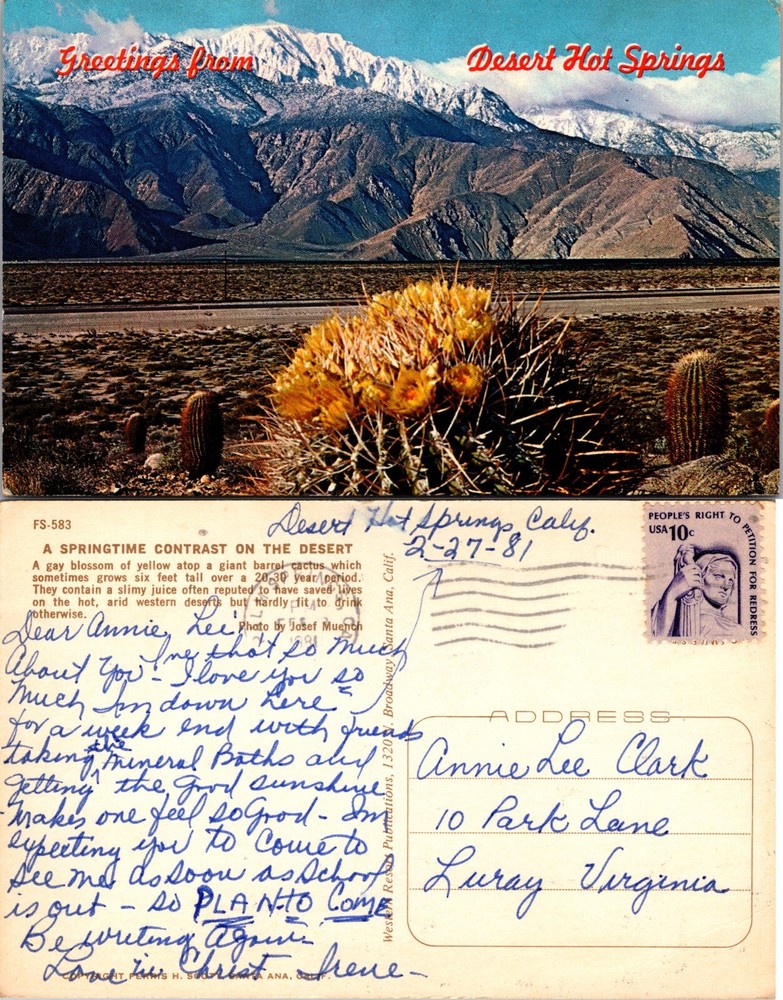 Greetings from Desert Hot Springs
FS-583
A SPRINGTIME CONTRAST ON THE DESERT
A gay blossom of yellow atop a giant barrel cactus which
sometimes grows six feet tall over a 20-30 year period.
They contain a slimy juice often reputed to have saved lives
on the hot, arid western deserts but hardly fit to drink
otherwise.
Photo by Josef Muench
Desert Hot Springs, Calif.
2-27-81
PEOPLE'S RIGHT TO PETITION FOR REDRESS
USA 10c
Dear Annie Lee:
I've that so much
About You - I love you so
Much Im down here
for a week end with friends
taking the Mineral Baths and
Getting the good sunshine
- Makes one feel so Good - Im
expecting you to Come to
See me as soon as School
is out - so PLAN TO COME
Be writing Again.
Love in Christ Irene -
Western Resort Publications, 1320 N. Broadway, Santa Ana, Calif.
ADDRESS
Annie Lee Clark
10 Park Lane
Luray Virginia
COPYRIGHT FERRIS H. SCOTT, SANTA ANA, CALIF.